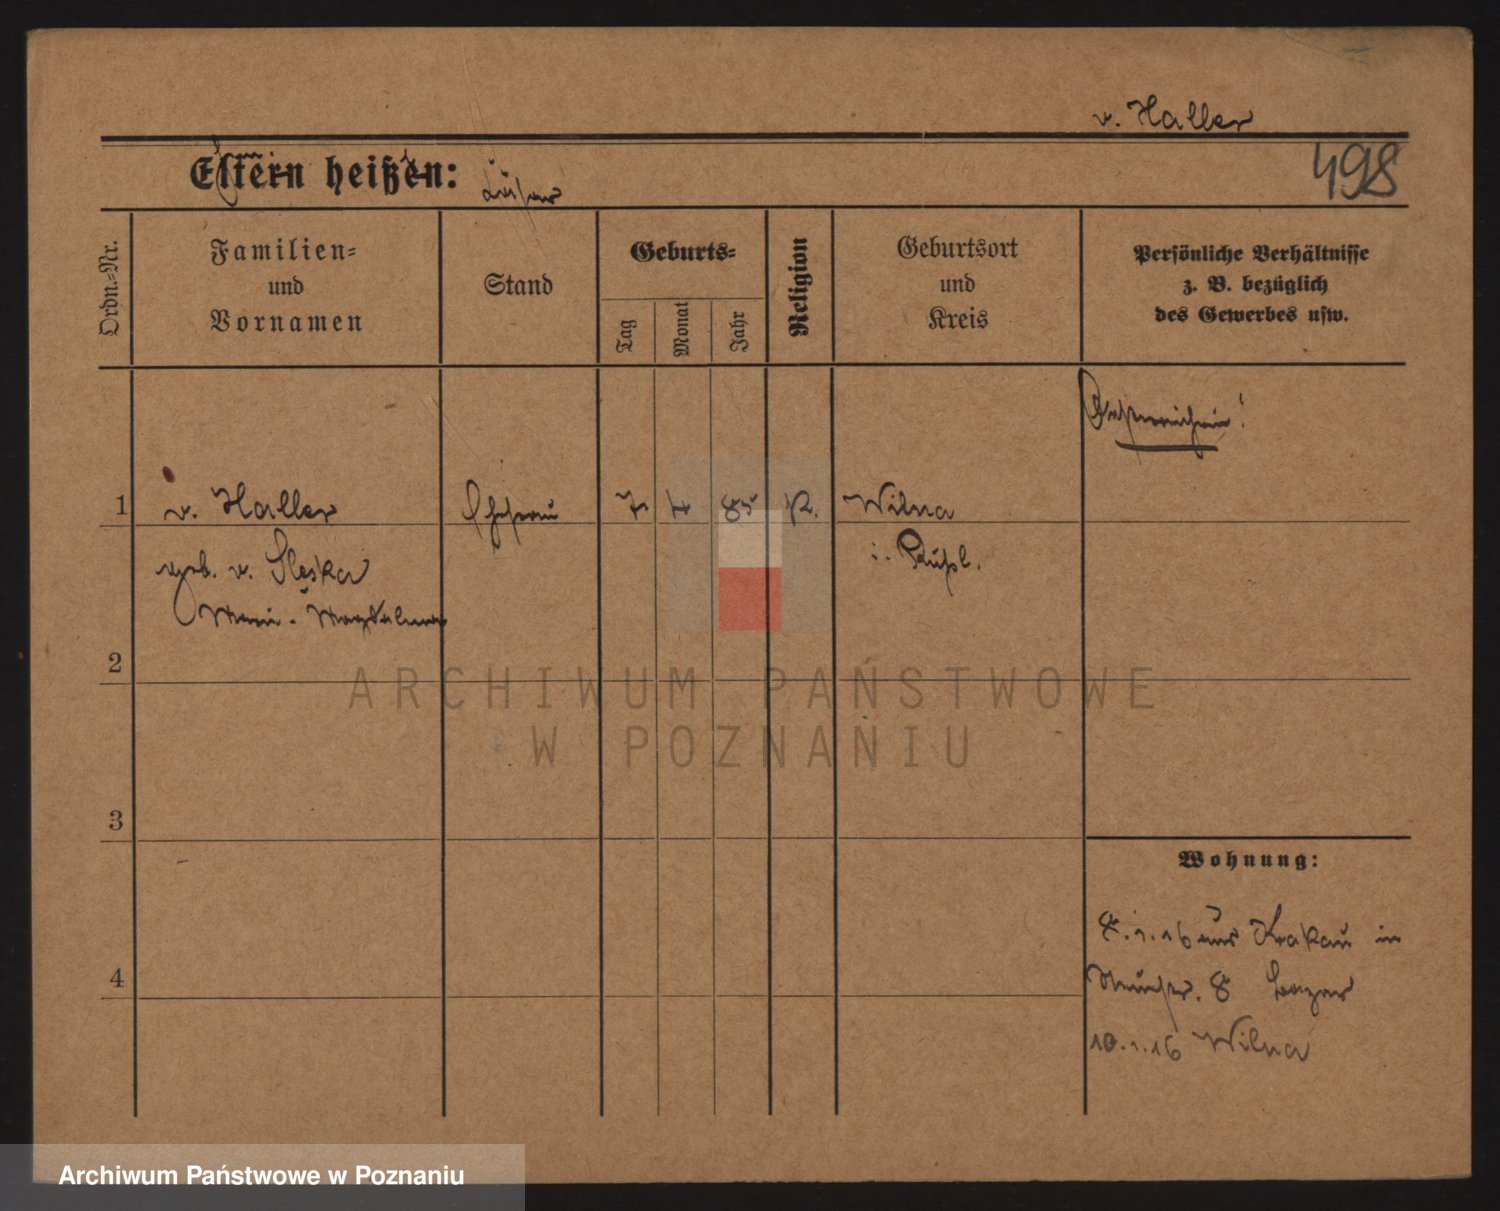 v. Haller
Eltern heißen:
498
Ordn.-Nr.
Familien-
und
Vornamen
Stand
Geburts-
Tag
Monat
Jahr
Religion
Geburtsort
und
Kreis
Persönliche Verhältnisse
z. B. bezüglich
des Gewerbes usw.
Österreicherin!
1 v. Haller Ehefrau 7 4 85 K. Wilna
geb. v. Sleska i. Rußl.
Marie-Magdalena
2
ARCHIWUM PAŃSTWOWE
W POZNANIU
3
Wohnung:
8.1.16 aus Krakau in
8 Bazar
4
10.1.16 Wilna
Archiwum Państwowe w Poznaniu